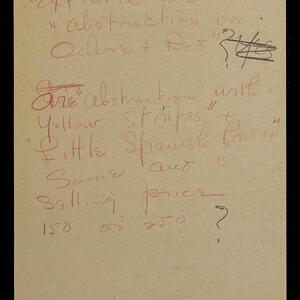 "abstraction in
Ochre + Red" ? Yes
Are abstraction with
Yellow Stripes" +
"Little Spanish Prison"
Same and is
Selling price
150 or 250 ?